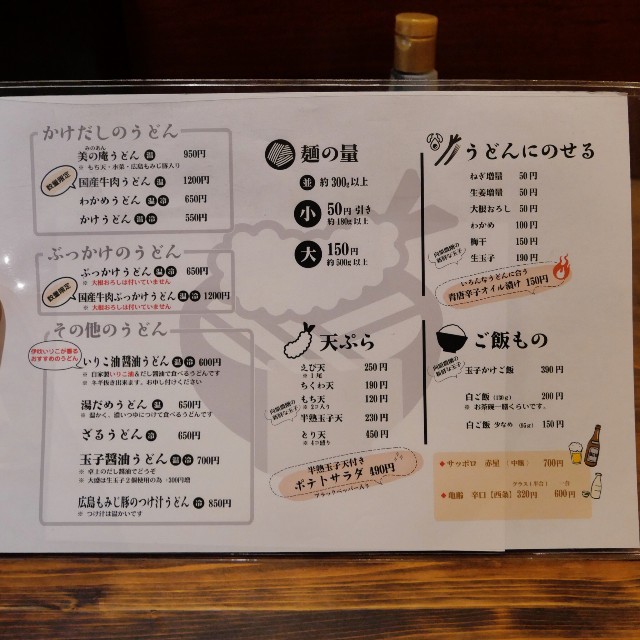 かけだしのうどん
みのあん
美の庵うどん 温 950円
※ もち天・水菜・広島もみじ豚入り
数量限定
国産牛肉うどん 温 1200円
わかめうどん 温 冷 650円
かけうどん 温 冷 550円
ぶっかけのうどん
ぶっかけうどん 温 冷 650円
※ 大根おろしは付いていません
数量限定
国産牛肉ぶっかけうどん 温 冷 1200円
※ 大根おろしは付いていません
その他のうどん
伊吹いりこが香る
おすすめのうどん
いりこ油醤油うどん 温 冷 600円
※ 自家製いりこ油&だし醤油で食べるうどんです
※ ネギ抜き出来ます。お申し付けください
湯だめうどん 温 650円
※ 温かく、濃いつゆにつけて食べるうどんです
ざるうどん 冷 650円
玉子醤油うどん 温 冷 700円
※ 卓上のだし醤油でどうぞ
※ 大盛は生玉子2個使用の為 +300円増
広島もみじ豚のつけ汁うどん 冷 850円
※ つけ汁は温かいです
麺の量
並 約300g以上
小 50円引き
約180g以上
大 150円
約500g以上
天ぷら
えび天 250円
※ 1尾
ちくわ天 190円
もち天 120円
※ 2コ入り
半熟玉子天 230円
とり天 450円
※ 4コ盛り
半熟玉子天付き
ポテトサラダ 490円
ブラックペッパー入り
うどんにのせる
ねぎ増量 50円
生姜増量 50円
大根おろし 50円
わかめ 100円
梅干 150円
生玉子 190円
いろんなうどんに合う
青唐辛子オイル漬け 150円
ご飯もの
玉子かけご飯 390円
白ご飯 (130g) 200円
※ お茶碗一膳くらいです。
白ご飯 少なめ (65g) 150円
◆ サッポロ 赤星 (中瓶) 700円
グラス(半合) 一合
◆ 亀齢 辛口【西条】320円 600円